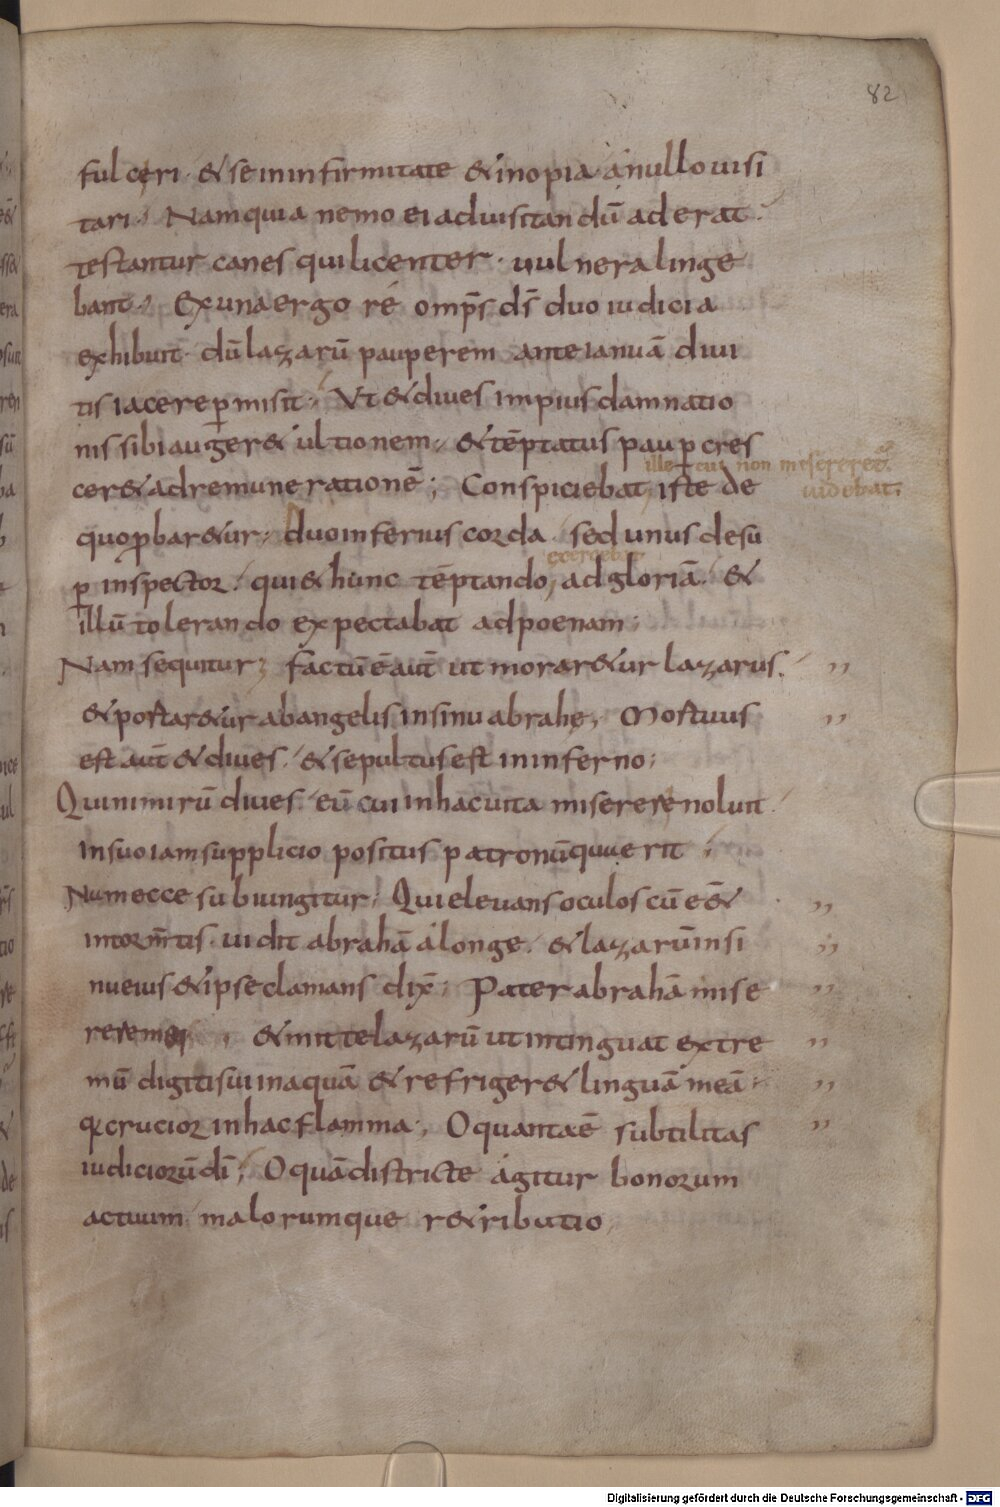 82
fulceri · & se in infirmitate & inopia a nullo uisi
tari ; Nam quia nemo ei ad uisitandū aderat ·
testantur canes qui licenter · uulnera linge
bant ; Ex una ergo re omps ds duo iudicia
exhibuit · dū lazarū pauperem ante ianuā diui
tis iacere pmisit ; Ut & diues impius damnatio
nis sibi auger& ultionem ; & tēptatus paup cres
ille cui non miserere&ur
cer& ad remunerationē ; Conspiciebat iste de
uidebat
quo pbar&ur ; duo inferius corda · sed unus desu
exercebat
p inspector · qui & hunc tēptando ad gloriā · &
illū tolerando expectabat ad poenam ;
Nam sequitur ; Factū ē aut ut morar&ur lazarus · ,,
& portar&ur ab angelis in sinu abrahę ; Mortuus ,,
est aut & diues · & sepultus est in inferno ;
Qui nimirū diues · eū cui in hac uita miserere noluit ·
in suo iam supplicio positus patronū quęrit ;
Nam ecce subiungitur ; Qui eleuans oculos cū ē& ,,
in torm̄tis · uidit abrahā a longe · & lazarū in si ,,
nu eius & ipse clamans dix̄ ; Pater abrahā mise ,,
rere mei ; & mitte lazarū ut intinguat extre ,,
mū digiti sui in aquā & refriger& linguā meā · ,,
q crucior in hac flamma ; O quanta ē subtilitas ,,
iudiciorū dī ; O quā districte agitur bonorum
actuum malorumque r&ributio ;
Digitalisierung gefördert durch die Deutsche Forschungsgemeinschaft - DFG